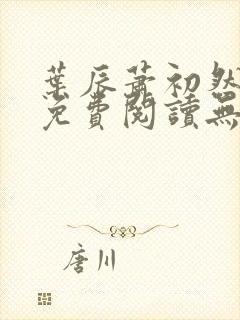 葉辰蕭初然
免費閱讀無
唐川